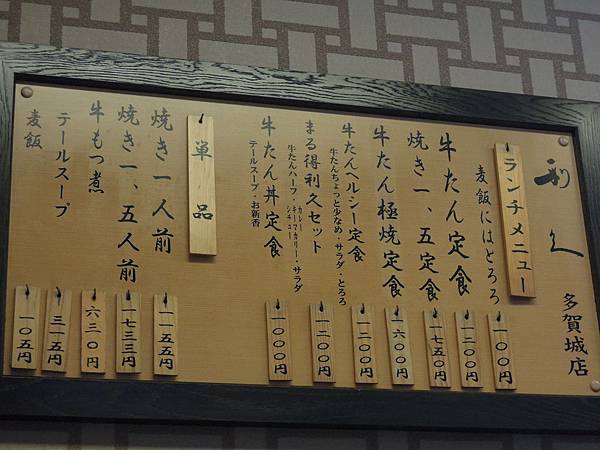 利久
多賀城店
ランチメニュー
麦飯にはとろろ
一〇〇円
牛たん定食
一二〇〇円
焼き一、五定食
一七五〇円
牛たん極焼定食
一六〇〇円
牛たんヘルシー定食
牛たんちょっと少なめ・サラダ・とろろ
一二〇〇円
まる得利久セット
牛たんハーフ・カレー
キーマカリー・サラダ
シチュー
一二〇〇円
牛たん丼定食
テールスープ・お新香
一〇〇〇円
単品
焼き一人前
一一五五円
焼き一、五人前
一七三三円
牛もつ煮
六三〇円
テールスープ
三一五円
麦飯
一〇五円